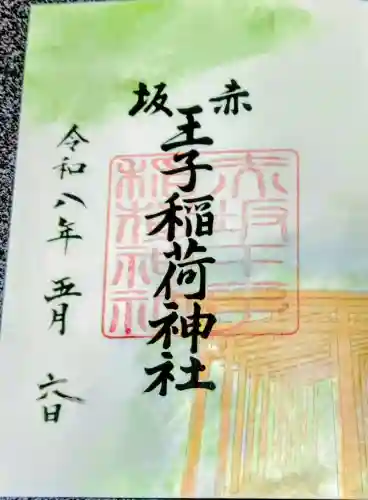 赤坂
王子稲荷神社
令和八年 五月 六日
赤坂王子
稲荷神社